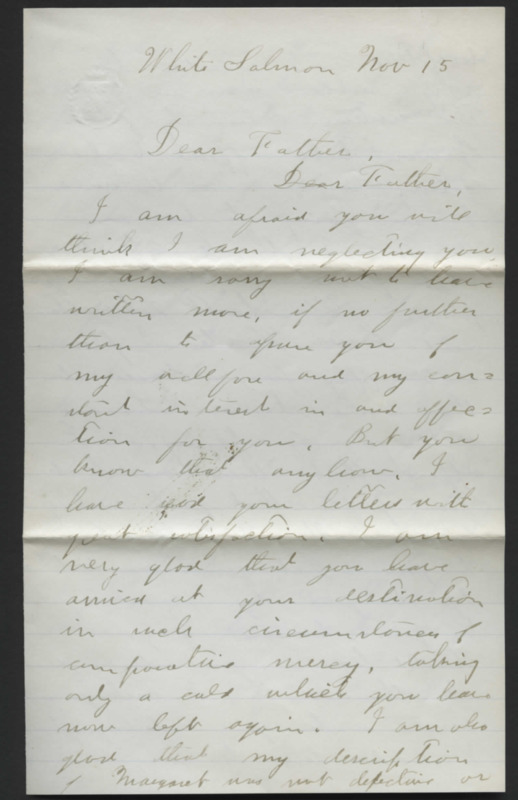 White Salmon Nov 15
Dear Father,
Dear Father,
I am afraid you will
think I am neglecting you.
I am sorry not to have
written more, if no further
than to you of
my welfare and my con=
stant interest in and affec=
tion for you. But you
know that anyhow. I
have your letters with
great satisfaction. I am
very glad that you have
arrived at your destination
in such circumstances of
comparative mercy, taking
only a cold which you have
now left again. I am also
glad that my description
of Margaret was not defective or